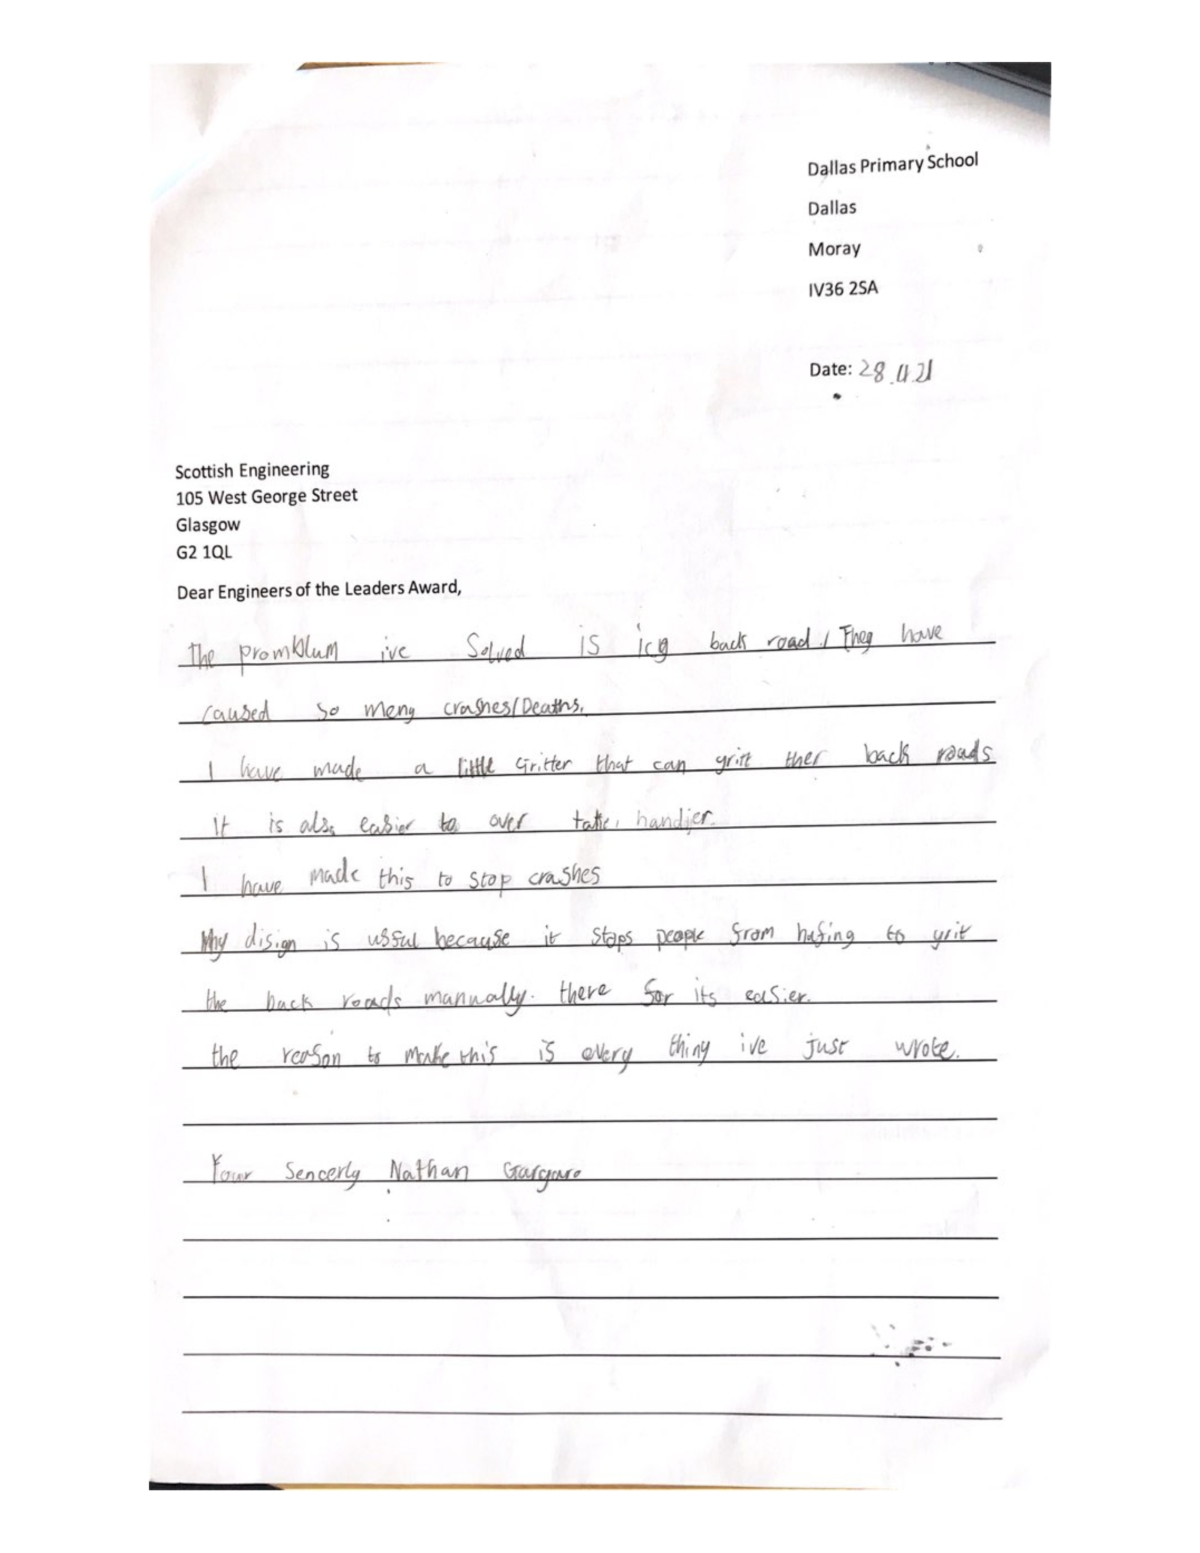 Dallas Primary School
Dallas
Moray
IV36 2SA
Date: 28.4.21
Scottish Engineering
105 West George Street
Glasgow
G2 1QL
Dear Engineers of the Leaders Award,
The promblum ive Solved is icy back road. They have
caused so meny crashes/Deaths.
I have made a little Gritter that can gritt ther back roads
It is also easier to over take, handier.
I have made this to stop crashes
My disign is usful because it stops people from hafing to grit
the back roads manually. there for its easier.
the reason to make this is every thing ive just wrote.
Your Sencerly Nathan Gargaro